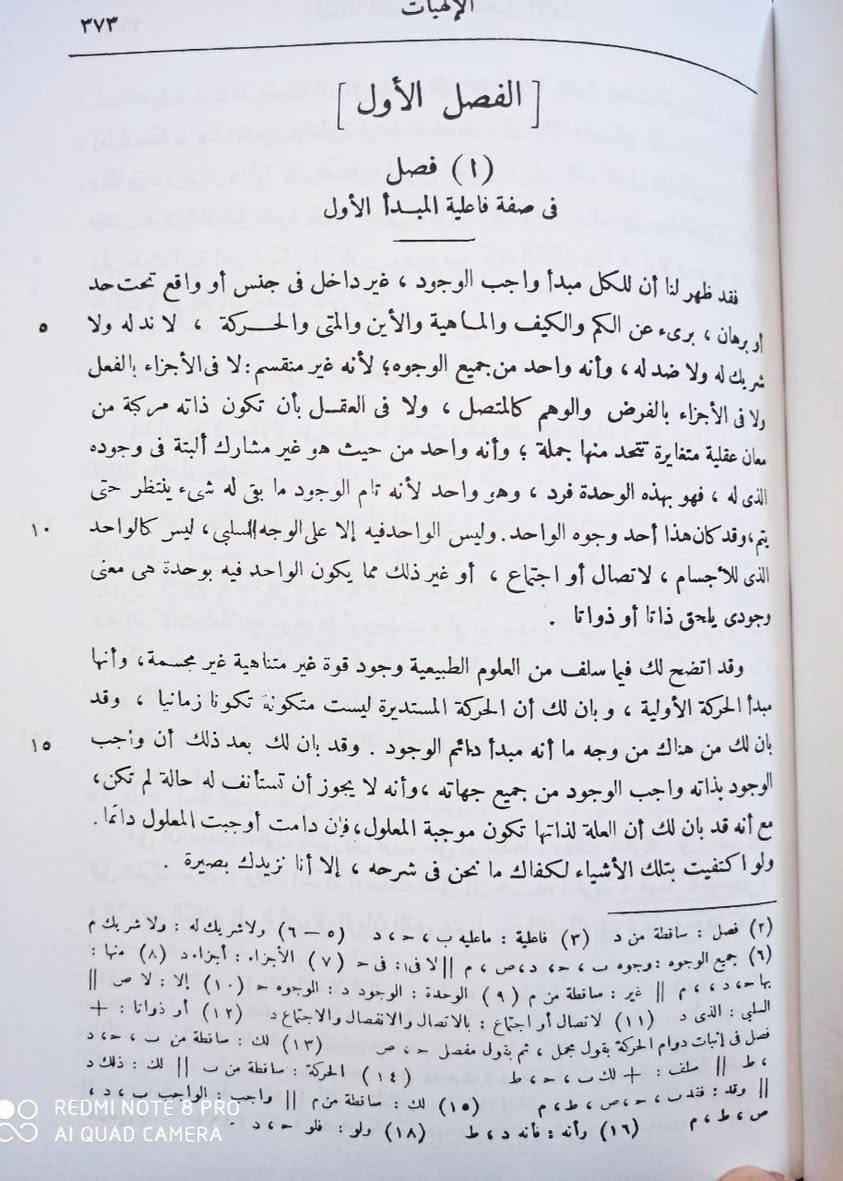 الإلهيات
٣٧٣
[ الفصل الأول ]
(١) فصل
فى صفة فاعلية المبـدأ الأول
فقد ظهر لنا أن للكل مبدأ واجب الوجود ، غير داخل فى جنس أو واقع تحت حد
أو برهان ، برىء عن الكم والكيف والمـاهية والأين والمتى والحـركة ، لا ند له ولا
٥
شريك له ولا ضد له ، وأنه واحد من جميع الوجوه؛ لأنه غير منقسم : لا فى الأجزاء بالفعل
ولا فى الأجزاء بالفرض والوهم كالمتصل ، ولا فى العقـل بأن تكون ذاته مركبة من
معان عقلية متغايرة تتحد منها جملة ؛ وأنه واحد من حيث هو غير مشارك ألبتة فى وجوده
الذى له ، فهو بهذه الوحدة فرد ، وهو واحد لأنه تام الوجود ما بقى له شىء ينتظر حتى
يتم، وقد كان هذا أحد وجوه الواحد. وليس الواحد فيه إلا على الوجه السلبى، ليس كالواحد
١٠
الذى للأجسام ، لاتصال أو اجتماع ، أو غير ذلك مما يكون الواحد فيه بوحدة هى معنى
وجودى يلحق ذاتا أو ذواتا .
وقد اتضح لك فيما سلف من العلوم الطبيعية وجود قوة غير متناهية غير مجسمة، وأنها
مبدأ الحركة الأولية ، وبان لك أن الحركة المستديرة ليست متكونة تكونا زمانيا ، وقد
بان لك من هناك من وجه ما أنه مبدأ دائم الوجود . وقد بان لك بعد ذلك أن واجب
١٥
الوجود بذاته واجب الوجود من جميع جهاته ،وأنه لا يجوز أن تستأنف له حالة لم تكن،
مع أنه قد بان لك أن العلة لذاتها تكون موجبة المعلول،فإن دامت أوجبت المعلول دائما .
ولو اكتفيت بتلك الأشياء لكفاك ما نحن فى شرحه ، إلا أنا نزيدك بصيرة .
(٢) فصل : ساقطة من د (٣) فاعلية : ماعليه ب ، حـ ، د (٥ – ٦) ولاشريك له : ولا شريك م
(٦) جميع الوجوه : وجوه ب ، حـ ، د ، ص ، م || لا فى١: فى حـ (٧) الأجزاء : أجزاء د (٨) منها :
بها حـ ، د ، م || غير : ساقطة من م (٩) الوحدة : الوجود د : الوجوه حـ (١٠) إلا : لا ص ||
السلبى : الذى د (١١) لاتصال أو اجتماع : بالاتصال والانفصال والاجتماع د (١٢) أو ذواتا : +
فصل فى إثبات دوام الحركة بقول مجمل ، ثم بقول مفصل حـ ، ص (١٣) لك : ساقطة من ب ، حـ ، د
، ط || سلف : + لك ب ، حـ ، ط (١٤) الحركة : ساقطة من ب || لك : ذلك د
|| وقد : فقد ب ، حـ ، ص ، ط ، م (١٥) لك : ساقطة من م || واجب : الواجب ب ، د ،
ص ، ط ، م (١٦) وأنه : فأنه د ، ط (١٨) ولو : فلو حـ ، د .
REDMI NOTE 8 PRO
AI QUAD CAMERA